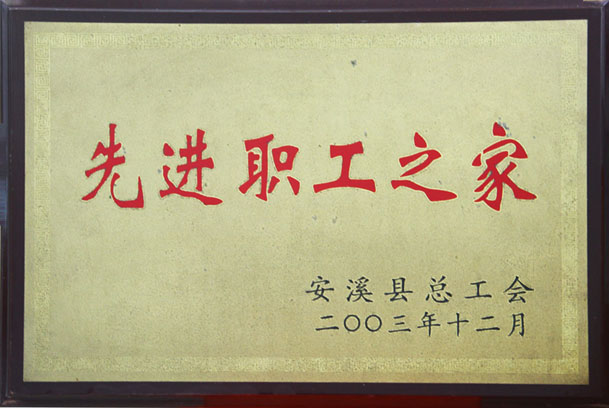 先进职工之家
安溪县总工会
二〇〇三年十二月